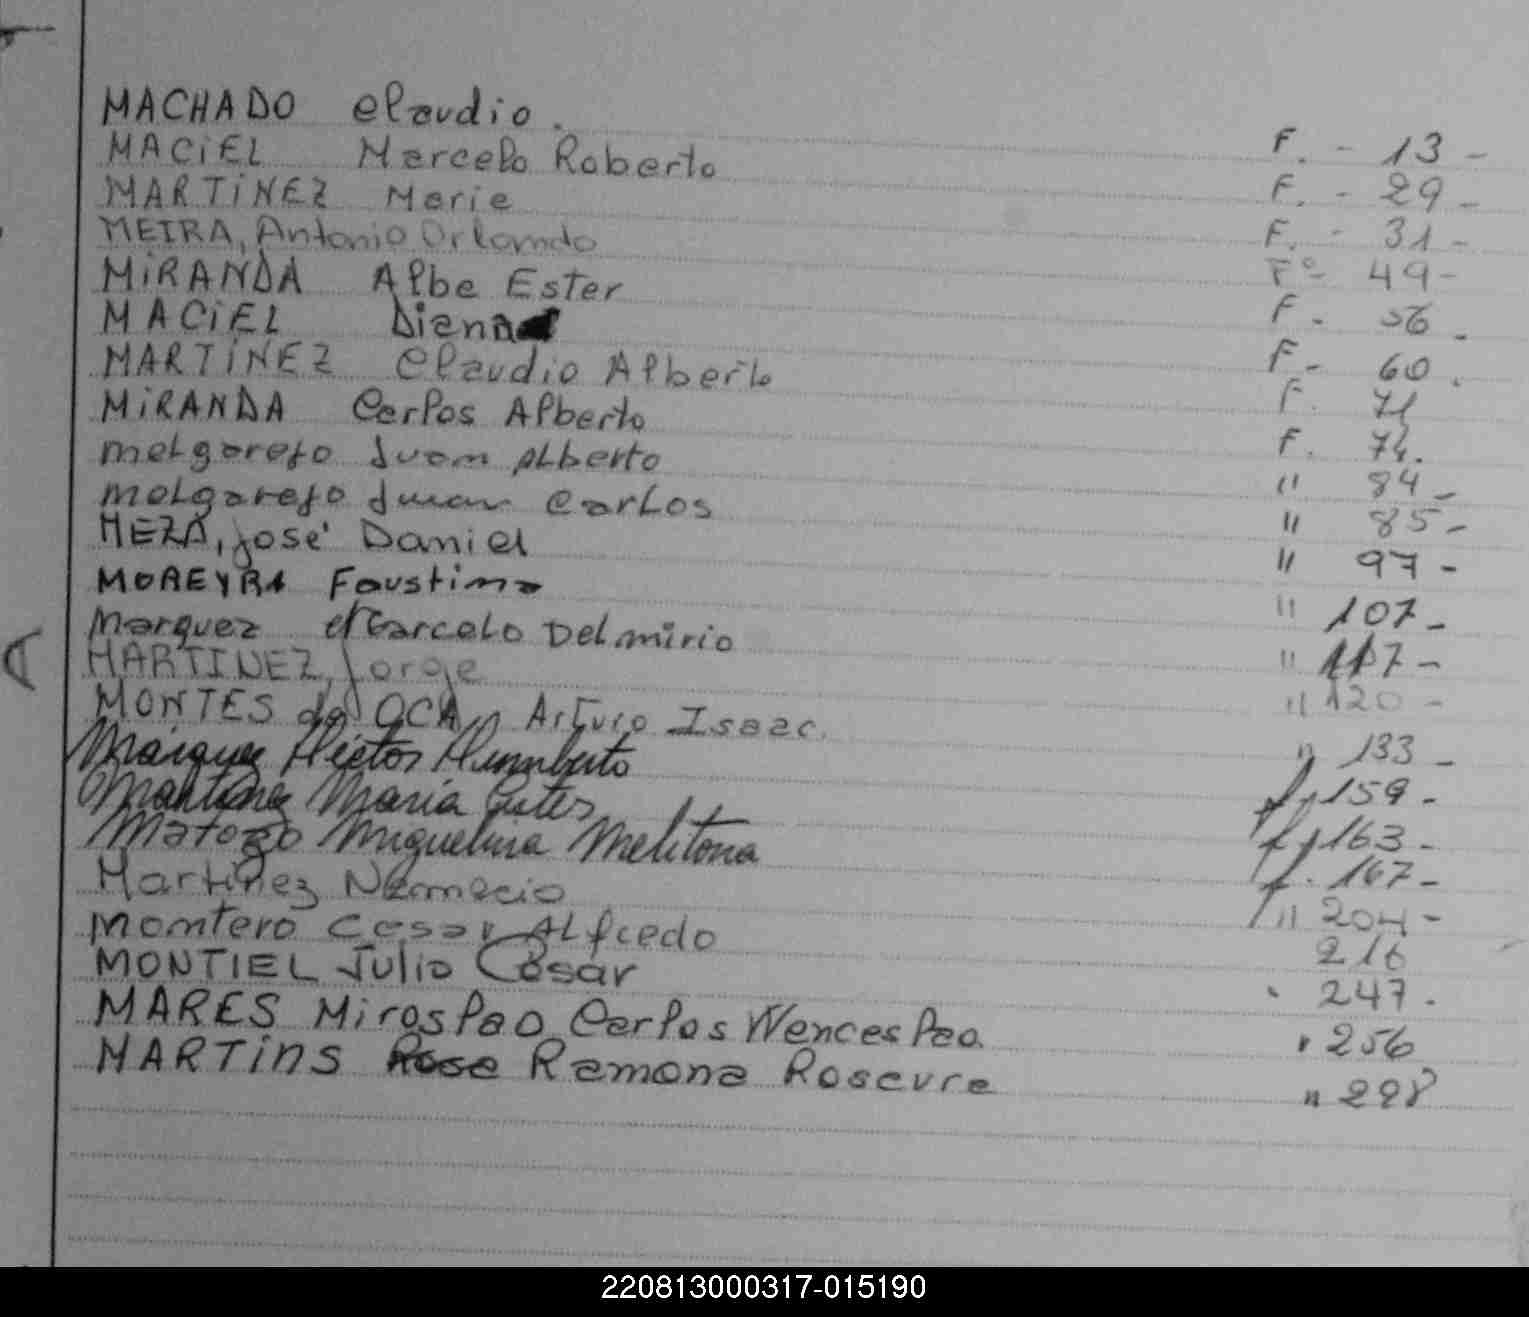 MACHADO Claudio. F. - 13 -
MACiEL Marcelo Roberto F. - 29 -
MARTiNEZ Maria F. - 31 -
MEIRA, Antonio Orlando Fº- 49 -
MiRANDA Alba Ester F. 56 -
MACiEL Diana F - 60 .
MARTiNEZ Claudio Alberto F. 71
MiRANDA Carlos Alberto F. 74.
melgarejo Juan Alberto " 84 -
melgarejo Juan Carlos " 85 -
MEZA, José Daniel " 97 -
MOREYRA Faustino " 107 -
Marquez Marcelo Delmirio " 117 -
MARTINEZ, Jorge " 120 -
MONTES de OCA, Arturo Isaac. " 133 -
Marquez Héctor Humberto f, 159 -
Martinez María Ester f, 163 -
Matozo Miguelina Melitona f. 167 -
Martinez Nemecio " 204 -
Montero Cesar Alfredo 216
MONTIEL Julio César " 247 .
MARES Miroslao Carlos Wenceslao. " 256
MARTiNS Ramona Rosaura " 298
220813000317-015190